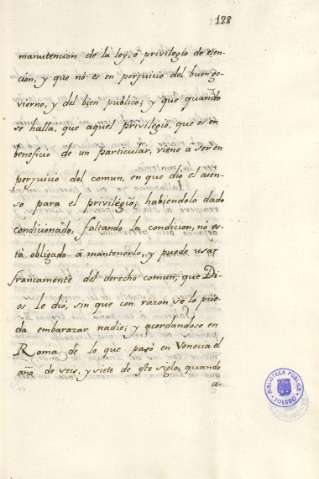 128
manutencion de la ley, ó privilegio de esen-
cion, y que no es en perjuicio del buen go-
vierno, y del bien publico; y que quando
se halla, que aquel Privilegio, que es en
beneficio de un particular, viene a ser en
perjuicio del comun, en que dio el asen-
so para el privilegio; habiendolo dado
condicionado, faltando la condicion, no es-
tá obligado á mantenerlo, y puede usar
francamente del derecho comun, que Di-
os le dió, sin que con razon se lo pue-
da embarazar nadie; y acordandose en
Roma de lo que pasó en Venecia el
año de seis, y siete de este siglo, quando
BIBLIOTECA PUBLICA
TOLEDO